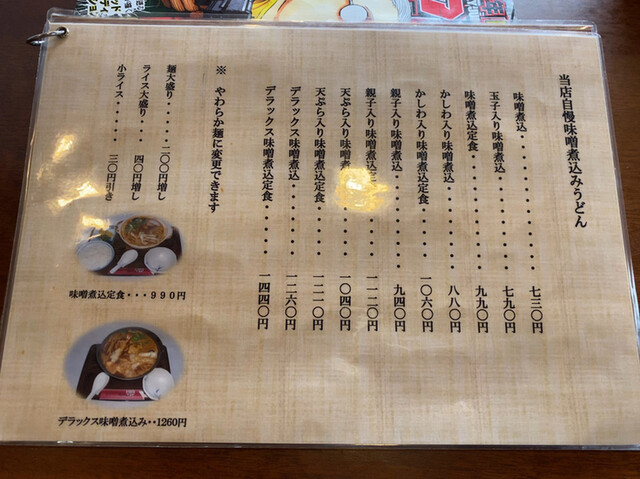 当店自慢味噌煮込みうどん
味噌煮込・・・・・・・・・・・七三〇円
玉子入り味噌煮込・・・・・・・七九〇円
味噌煮込定食・・・・・・・・・九九〇円
かしわ入り味噌煮込・・・・・・八八〇円
かしわ入り味噌煮込定食・・・・一〇六〇円
親子入り味噌煮込・・・・・・・九四〇円
親子入り味噌煮込定食・・・・・一一二〇円
天ぷら入り味噌煮込・・・・・・一〇四〇円
天ぷら入り味噌煮込定食・・・・一二一〇円
デラックス味噌煮込・・・・・・一二六〇円
デラックス味噌煮込定食・・・・一四四〇円
※ やわらか麺に変更できます
麺大盛り・・・・・二〇〇円増し
ライス大盛り・・・・四〇円増し
小ライス・・・・・三〇円引き
味噌煮込定食・・・990円
デラックス味噌煮込み・・1260円